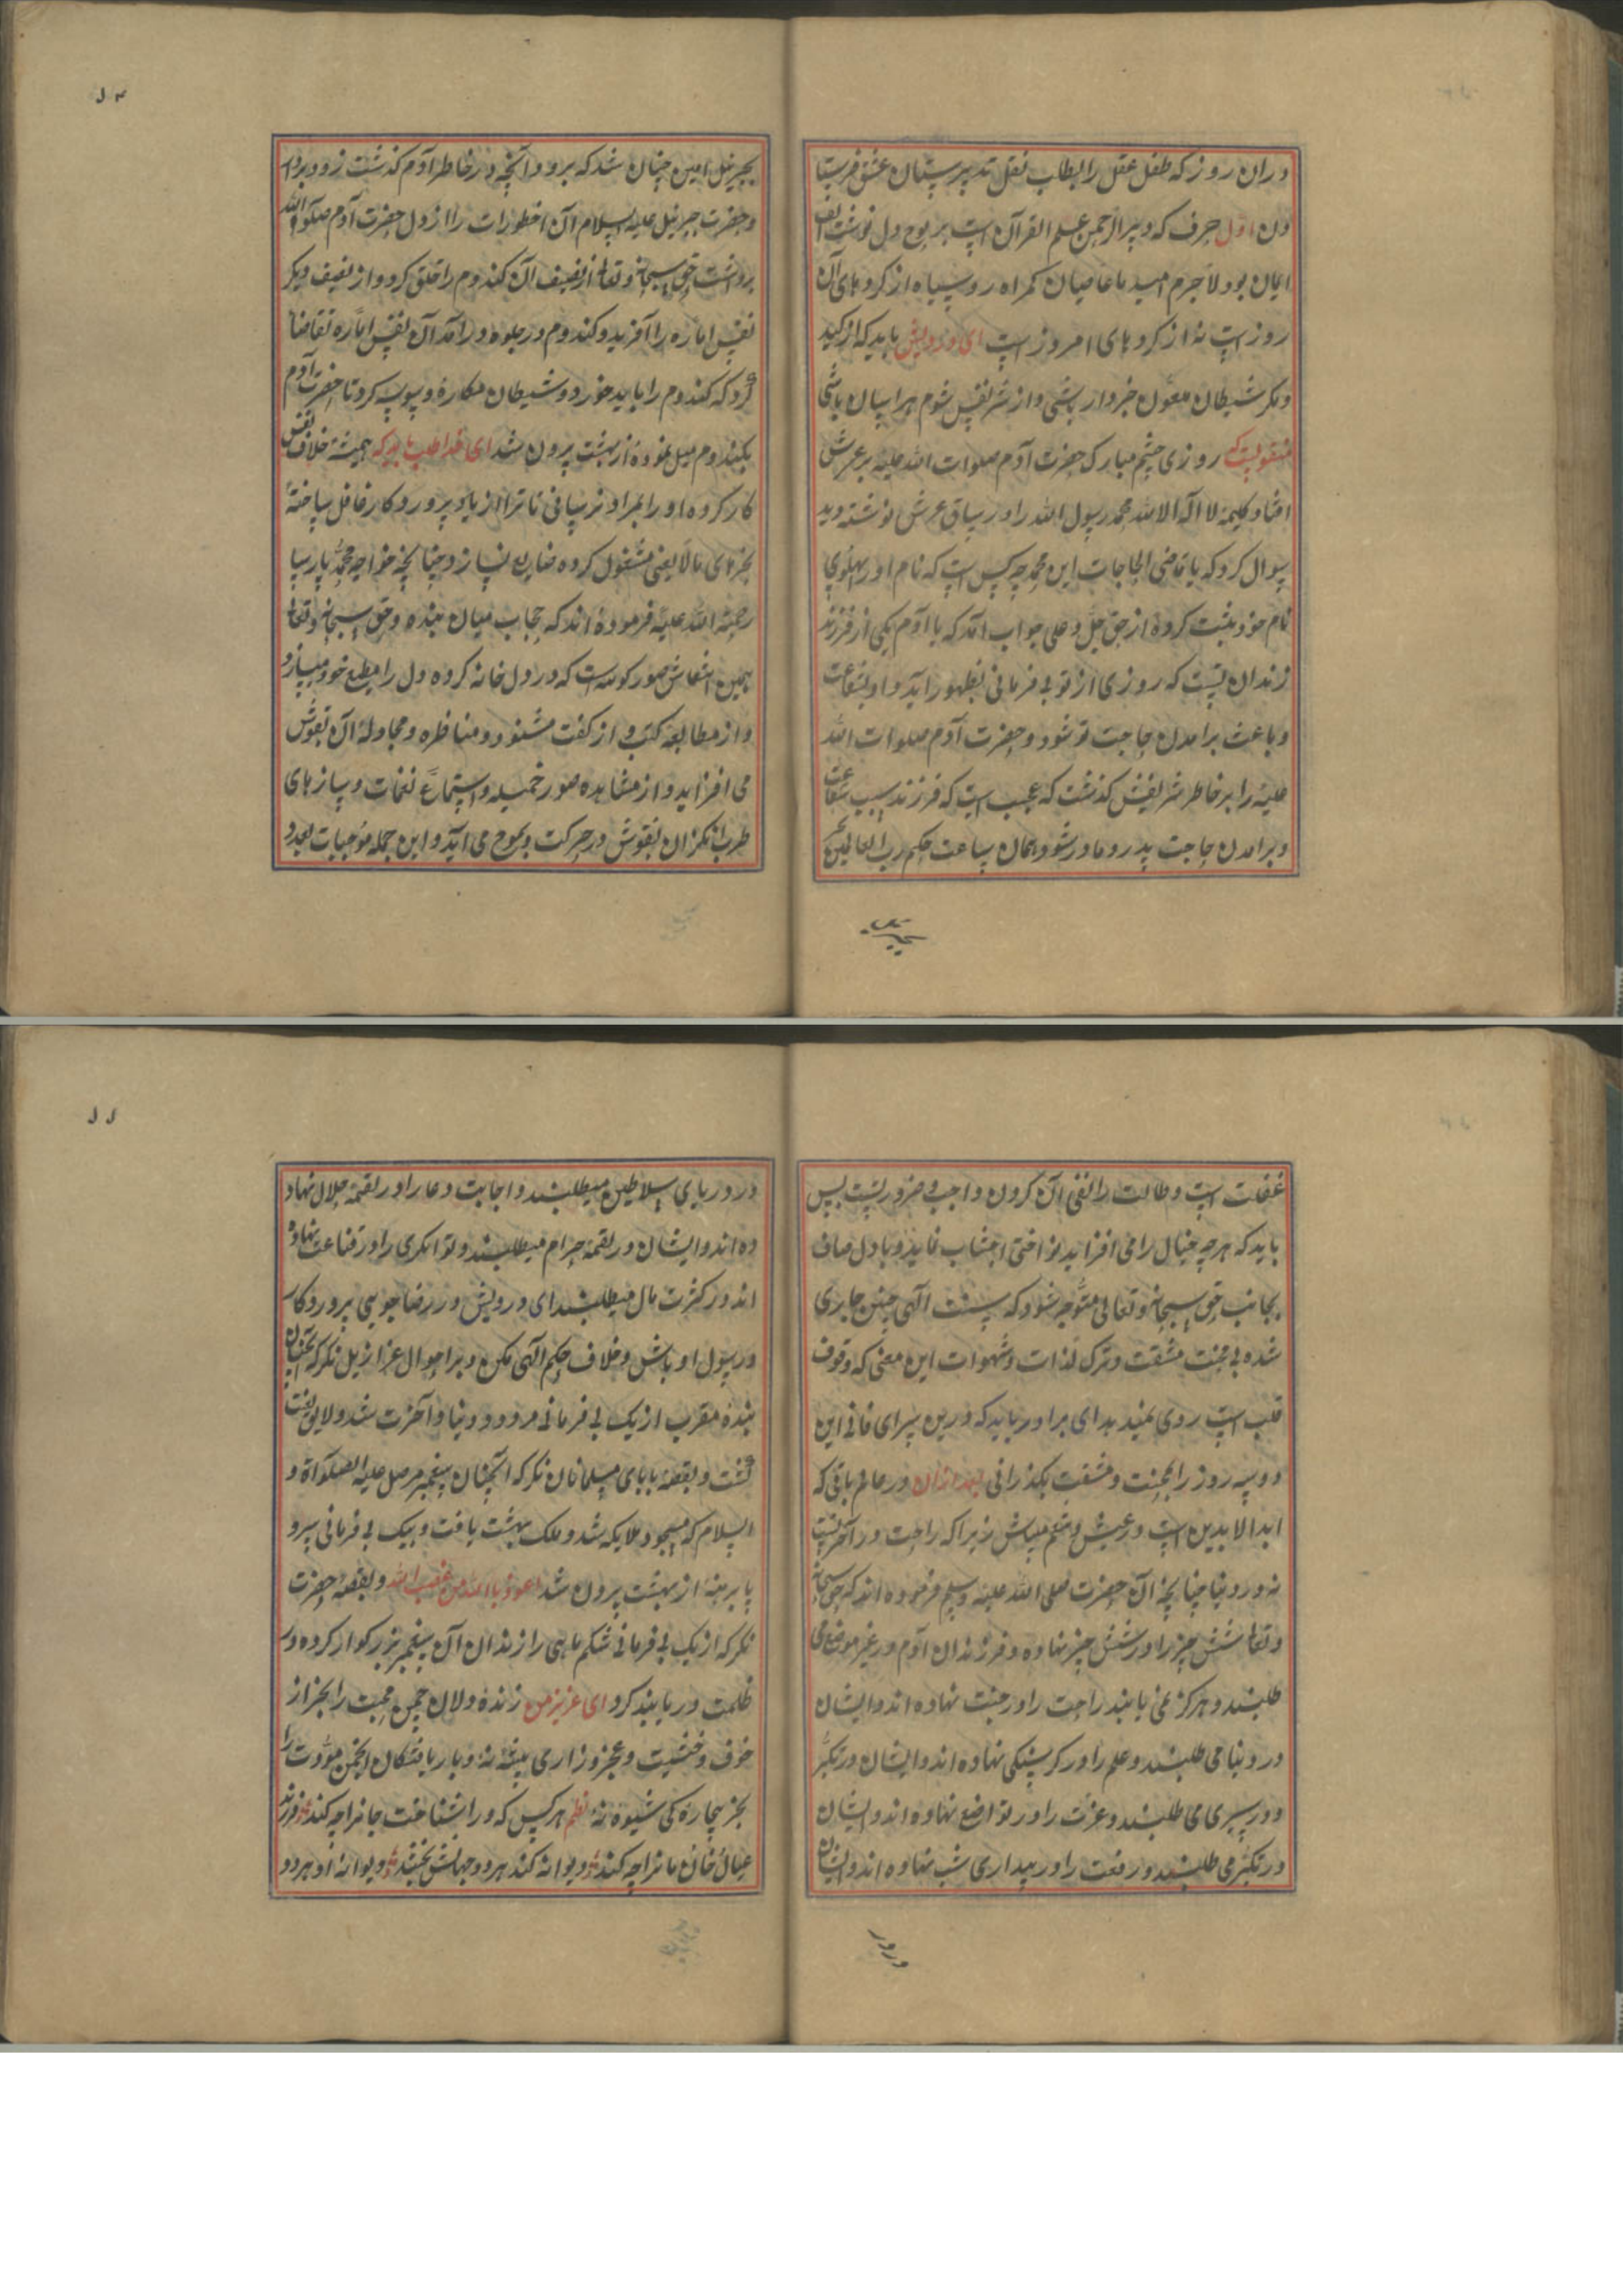 دران روز که طفل عقل را بطاب نقل تدبیر پرستان عشق فرستا
دن اول حرف که دبیر الرحمن علم القرآن است بر لوح دل نوشت الف
ایمان بود لاجرم امید ما عاصیان گمراه روسیاه از کردهای آن
روز است نه از کردهای امروز است ای درویش باید که از کید
و مکر شیطان خبردار باشی و از شر نفس شوم هراسان باشی
منقولست که روزی چشم مبارک حضرت آدم صلوات الله علیه بر عرش
افتاد کلیمه لا اله الا الله محمد رسول الله را در ساق عرش نوشته دید
سوال کرد که یا قاضی الحاجات این محمد چه کس است که نام او در پهلوی
نام خود ثبت کرده از حق جل و علی جواب آمد که یا آدم یکی از فرزند
زندان تست که روزی از تو بی فرمانی بظهور آید و او بشفاعت
و باعث برامدن حاجت تو شود و حضرت آدم صلوات الله
علیه را بر خاطر شریفش کذشت که عجب است که فرزند سبب شفاعت
و برامدن حاجت پدر و مادر شود همان ساعت حکم رب العالمین
۱۴
بجبرئیل امین چنان شد که برو و آنچه در خاطر آدم کذشت زود بردار
و حضرت جبرئیل علیه السلام آن خطورات را از دل حضرت آدم صلوة الله
برداشت حق سبحانه و تعالی از نصیف آن کندوم را خلق کرد و از نصیف دیکر
نفس اماره را آفرید و کندوم در جلوه درآمد آن نفس اماره تقاضا
کرد که کندوم را باید خورد و شیطان مکاره وسوسه کرد تا حضرت آدم
بکندوم میل نموده از بهشت برون شد ای خدا طلب باید که همیشه خلاف نفس
کار کرده او را بمراد نرسانی تا ترا از یاد پروردکار غافل ساخته
بچیزهای مالایعنی مشغول کرده ضایع نسازد چنانچه خواجه محمد پارسا
رحمة الله علیه فرموده اند که حجاب میان بنده و حق سبحانه و تعالی
همین انتقاش صور کونیه است که در دل خانه کرده دل را مطیع خود میسازد
و از مطالعه کتب و از کفت مشنود و مناظره و مجادله آن نقوش
می افزاید و از مشاهده صور جمیله و استماع نغمات و سازهای
طرب انکزان نقوش در حرکت و بموج می آید و این جمله موجبات بعد و
غفلت است و طالب را نفی آن کردن واجب و ضرورتست پس
باید که هرچه خیال را می افزاید از اختی اجتناب نماید و با دل صاف
بجانب حق سبحانه و تعالی متوجه شود که سنت الهی چنین جاری
شده بی محنت مشقت و ترک لذات و شهوات این معنی که وقوف
قلب است روی نمیدهد ای برادر باید که درین سرای فانی این
دو سه روز را بمحنت و مشقت بکذرانی بعد ازان در عالم باقی که
ابد الابدین است در عیش و تنعم میباش زیراکه راحت در آخرتست
نه در دنیا چنانچه آن حضرت صلی الله علیه وسلم فرموده اند که حق سبحانه
و تعالی شش چیز را در شش چیز نهاده و فرزندان آدم در غیر موضع می
طلبند و هرکز نمی یابند راحت را در جنت نهاده اند و ایشان
در دنیا می طلبند و علم را در کرسنکی نهاده اند و ایشان در تکبر
و در سیری می طلبند و عزت را در تواضع نهاده اند و ایشان
در تکبر می طلبند و رفعت را در بیداری شب نهاده اند و ایشان
در در
۱۱
در دربای سلاطین میطلبند و اجابت دعا را در لقمه حلال نهاد
ده اند و ایشان در لقمه حرام میطلبند و توانکری را در قناعت نهاده
اند در کثرت مال میطلبند ای درویش در رضا جویی پروردکار
و رسول او باش و خلاف حکم الهی مکن و بر احوال عزازیل نکر که آنچنان
بنده مقرب از یک بی فرمانی مردود دنیا و آخرت شد و لایق لعنت
کشت و بقصه بابای مسلمانان نکر که آنچنان پیغمبر مرسل علیه الصلوة و
السلام که مسجود ملایکه شد و ملک بهشت یافت و بیک بی فرمانی سر و
پا برهنه از بهشت برون شد اعوذ بالله من غضب الله و بقصه حضرت
نکر که از یک بی فرمانی شکم ماهی را زندان آن پیغمبر بزرکوار کرده در
ظلمت دریا بند کرد ای عزیز من زنده دلان چمن محبت را بجز از
خوف و خشیت و عجز و زاری پیشه نه و بار یافتکان انجمن مودت را
بجز بیچاره کی شیوه نه نظم هر کس که ورا شناخت جانرا چه کند فرزند
عیال خانمانرا چه کند دیوانه کند هر دو جهانش بخشد دیوانه او هر دو